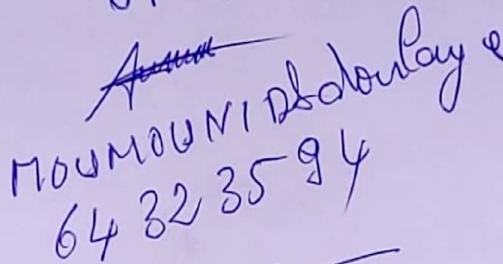 MOUMOUNI Abdoulaye
64 32 35 94